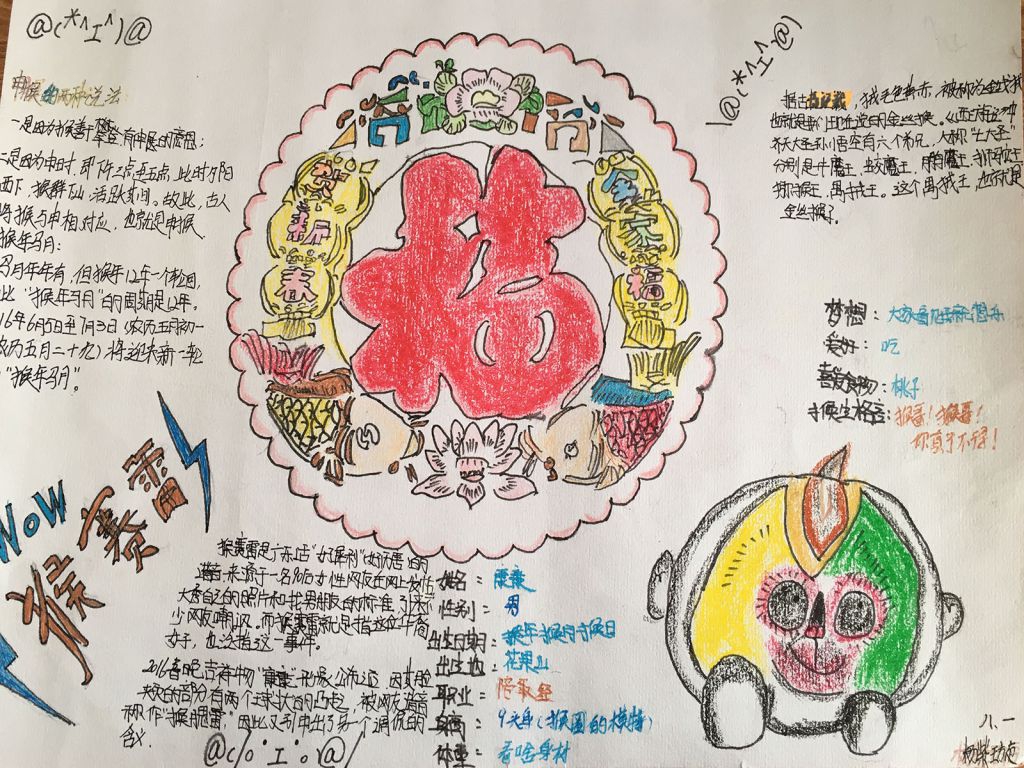 @(*^ェ^)@
申猴的两种说法:
一是因为猴善攀登,有申展的意思;
二是因为申时,即下午3点至5点,此时夕阳
西下,猴群下山,活跃其间。故此,古人
将猴与申相对应,也就是申猴。
猴年马月:
马月年年有,但猴年12年一个轮回,
比"猴年马月"的周期是12年。
16年6月5日至7月3日(农历五月初一
农历五月二十九)将迎来新一轮
"猴年马月"。
WOW
猴赛雷
贺新春
福
全家福
@(*^ェ^@)
据古书记载,猴毛色黄赤,被称为金线猴
也就是我们现在说的金丝猴。《西游记》中
齐天大圣孙悟空有六个弟兄,大称"七大圣"
分别是牛魔王,蛟魔王,鹏魔王,狮驼王
猕猴王,禺狨王。这个禺狨王,也就是
金丝猴?
梦想:
爱好:吃
喜爱食物:桃子
猴生格言:猴哥!猴哥!
你真了不得!
猴赛雷是广东话"好犀利"(好厉害)的
谐音,来源于一名女性网友在网上发帖
大秀自己的照片和找男朋友的标准,引来不
少网友嘲讽,而猴赛雷就是指这位
女子,也泛指这一事件。
2016春晚吉祥物"康康"形象公布之后,因其脸
夹的部分有两个球状的凸起,被网友谐音
称作"猴腮雷"因此又引申出了另一个调侃的
含义.
@(/o·ェ·o)@/
姓名:康康
性别:男
出生日期:猴年猴月猴日
出生地:花果山
职业:
身高:9头身(猴圈的模特)
体重:看啥身材
八、一